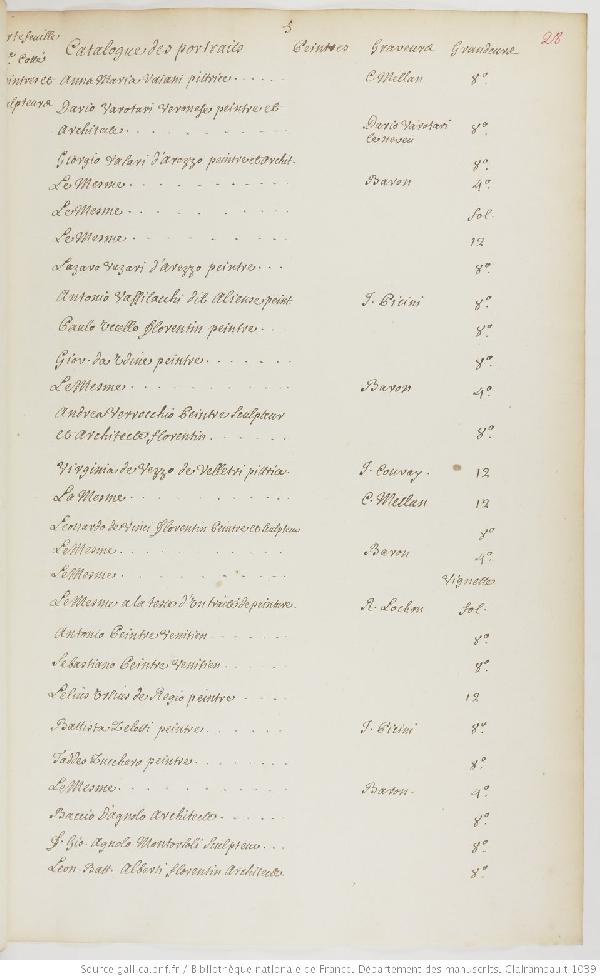 5
28
rtefeuille Catalogue des portraits Peintres Graveurs Grandeurs
e. Cotté
eintres et Anna Maria Vaiani pittrice C. Mellan 8º
culpteurs
Dario Varotari Veronese peintre et
Architecte Dario Varotari 8º
le neveu
Giorgio Vasari d'Arezzo peintre et archit. 8º
Le Mesme Baron 4º
Le Mesme fol.
Le Mesme 12
Lazaro Vazari d'Arezzo peintre 8º
Antonio Vassilacchi dit Aliense peint J. Picini 8º
Paulo Vecello florentin peintre 8º
Giov. da Vdine peintre 8º
Le Mesme Baron 4º
Andrea Verrocchio Peintre Sculpteur
et Architecte florentin 8º
Virginia de Vezzo de Velletri pittrice J. Couvay. 12
La Mesme C. Mellan 12
Leonardo de Vinci florentin Peintre et sculpteur 8º
Le Mesme Baron 4º
Le Mesme Vignette
Le Mesme a la teste d'un traité de peinture R. Lochon fol.
Antonio Peintre Venitien 8º
Sebastiano Peintre Venitien 8º
Lelius Vrsius de Regio peintre 12
Battista Zelotti peintre J. Picini 8º
Taddeo Zucchero peintre 8º
Le Mesme Baron 4º
Baccio D'agnolo Architecte 8º
F. Gio. Agnolo Montorsoli Sculpteur 8º
Leon Batt. Alberti florentin Architecte 8º
Source gallica.bnf.fr / Bibliothèque nationale de France. Département des manuscrits. Clairambault 1039